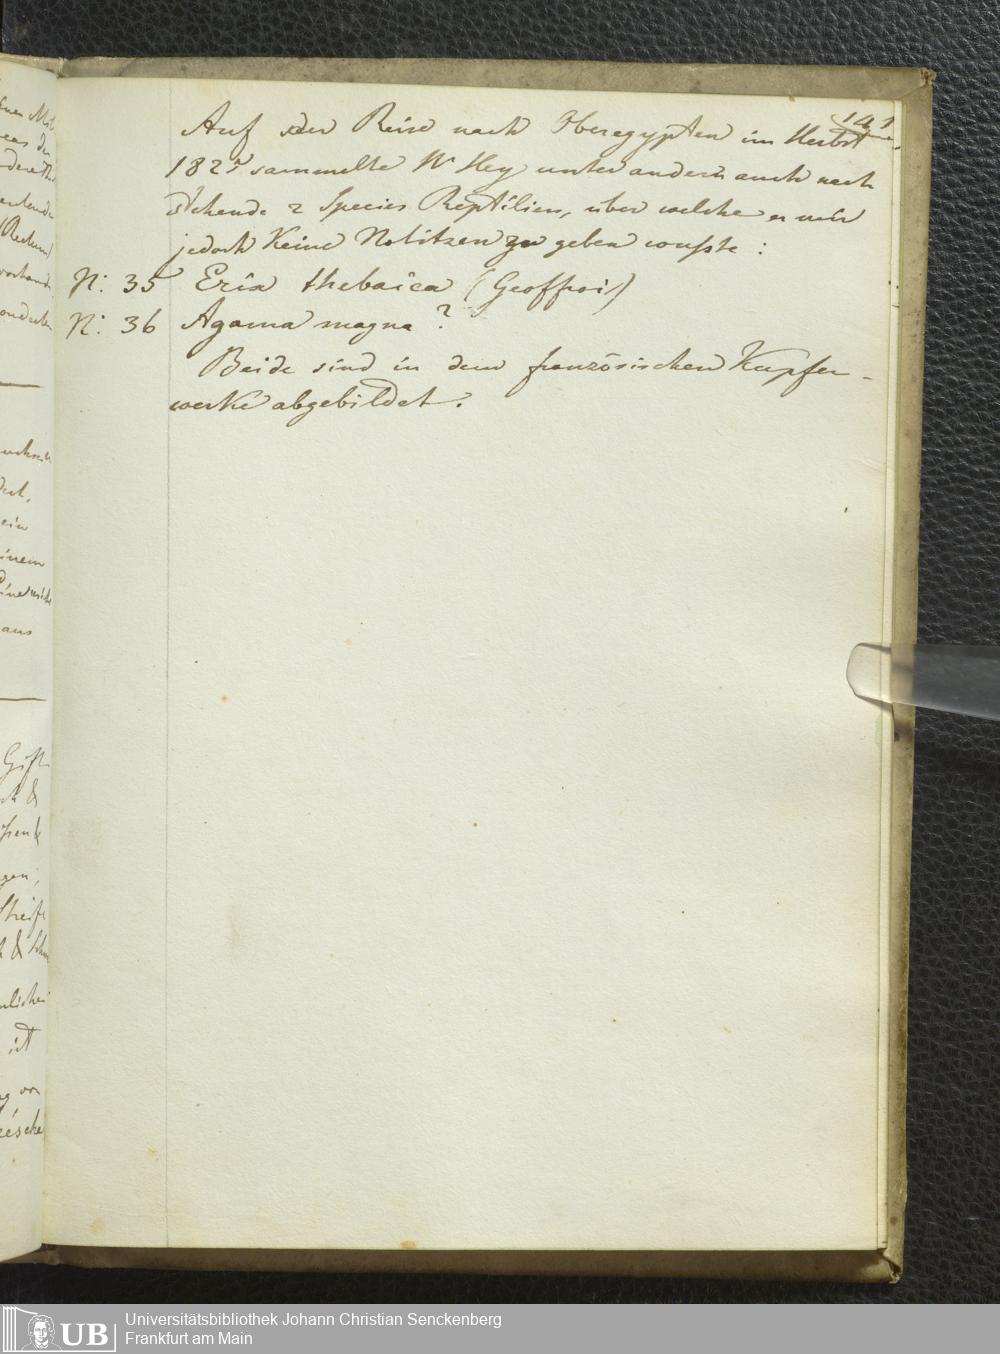 141
Auf der Reise nach Oberegypten im Herbst
1825 sammelte Hr Hey unter andern auch nach
stehende 2 Species Reptilien, über welche er mir
jedoch keine Notitzen zu geben wusste:
N: 35 Erix thebaica (Geoffroi)
N: 36 Agama magna?
Beide sind in dem französischen Kupfer-
werke abgebildet.
ein
aus
ist
UB
Universitätsbibliothek Johann Christian Senckenberg
Frankfurt am Main